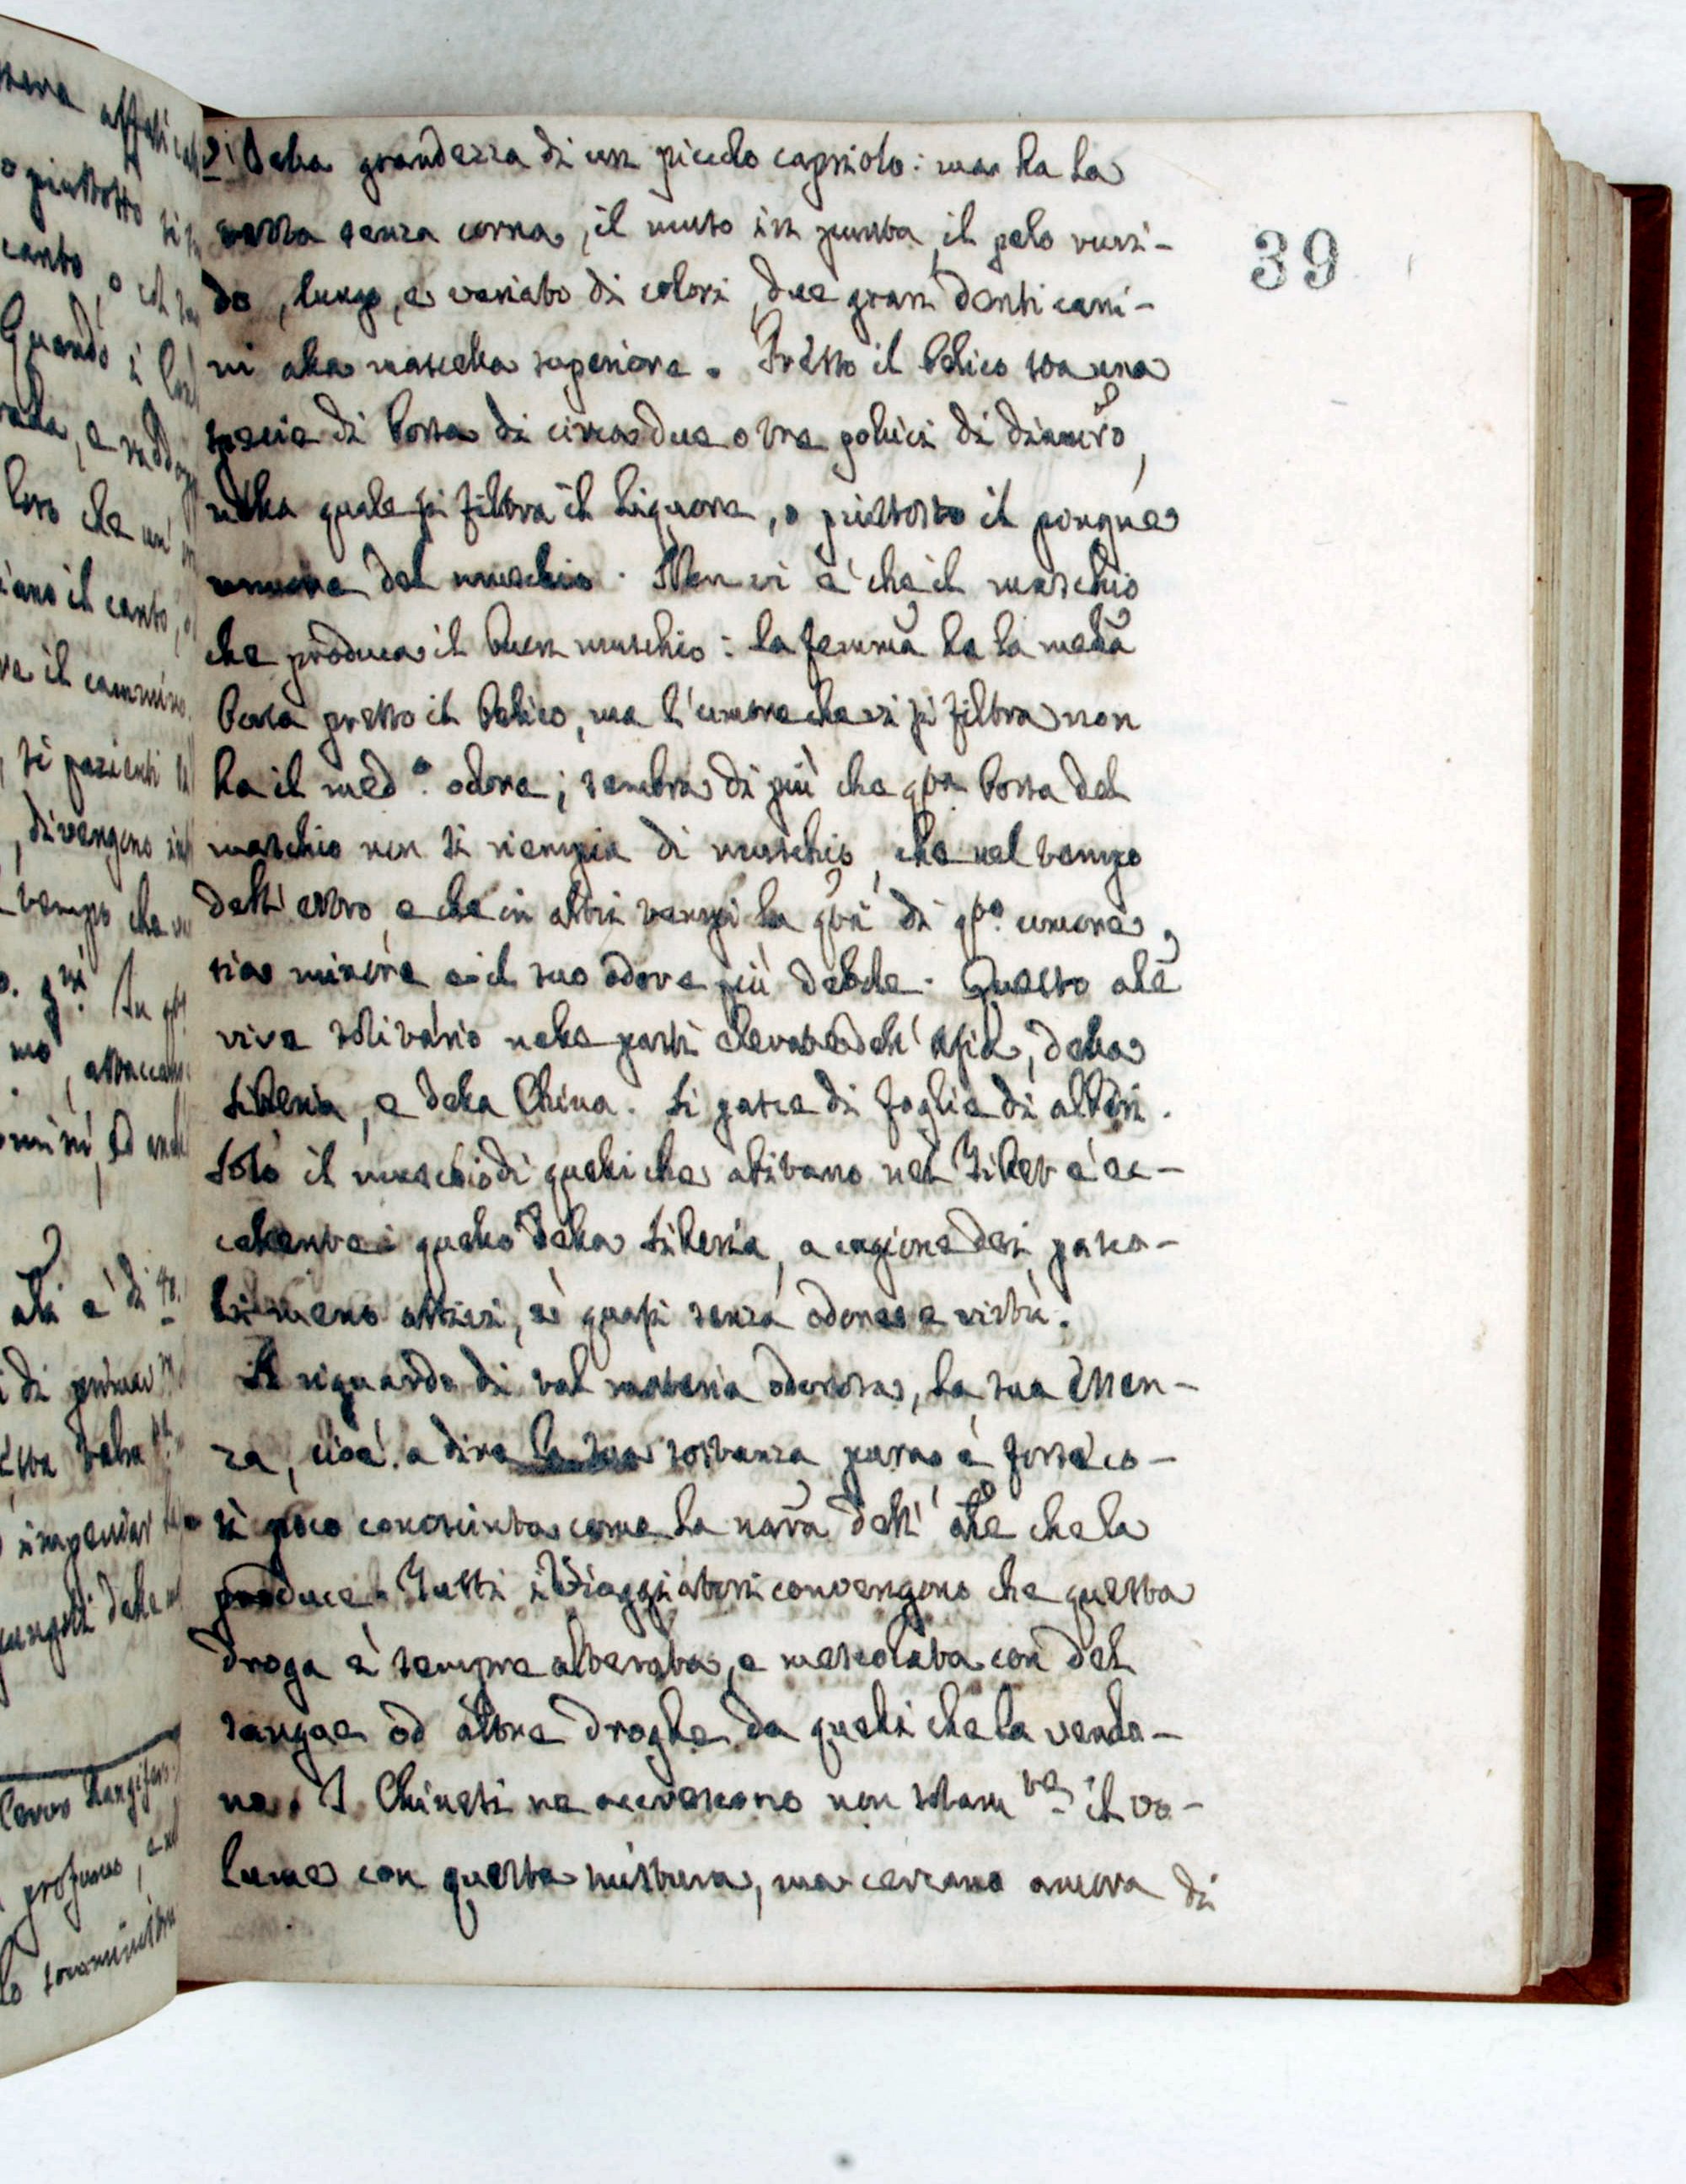 39
è della grandezza di un piccolo capriolo: ma ha la
testa senza corna, il muso in punta, il pelo ruvi-
do, lungo, e variato di colori, due gran denti cani-
ni alla mascella superiore. Presso il belico sta una
specie di borsa di circa due o tre pollici di diamro,
nella quale si filtra il liquore, o piuttosto il pingue
umore del muschio. Non vi è che il maschio
che produca il buon muschio: la femma ha la meda
borsa presso il belico, ma l'umore che vi si filtra non
ha il med.o odore; sembra di più che qta borsa del
maschio non si riempia di muschio, che nel tempo
dell'estro, e che in altri tempi la qtà di qto umore,
sia minore e il suo odore più debole. Questo ale
vive solitario nelle parti elevate dell'Asia, della
Siberia, e della China. Si pasce di foglie di alberi.
Solo il muschio di quelli che abitano nel Tibet è ec-
cellente: quello della Siberia, a cagione dei pasco-
li meno attivi, è quasi senza odore e virtù.
A riguardo di tal materia odorosa, la sua essen-
za, cioè a dire la sua sostanza pura è forse co-
sì poco conosciuta come la nara dell'ale che la
produce. Tutti i Viaggiatori convengono che questa
droga è sempre alterata, e mescolata con del
sangue od altre droghe da quelli che la vendo-
no. I Chinesi ne accrescono non solamte il vo-
lume con questa mistura, ma cercano ancora di